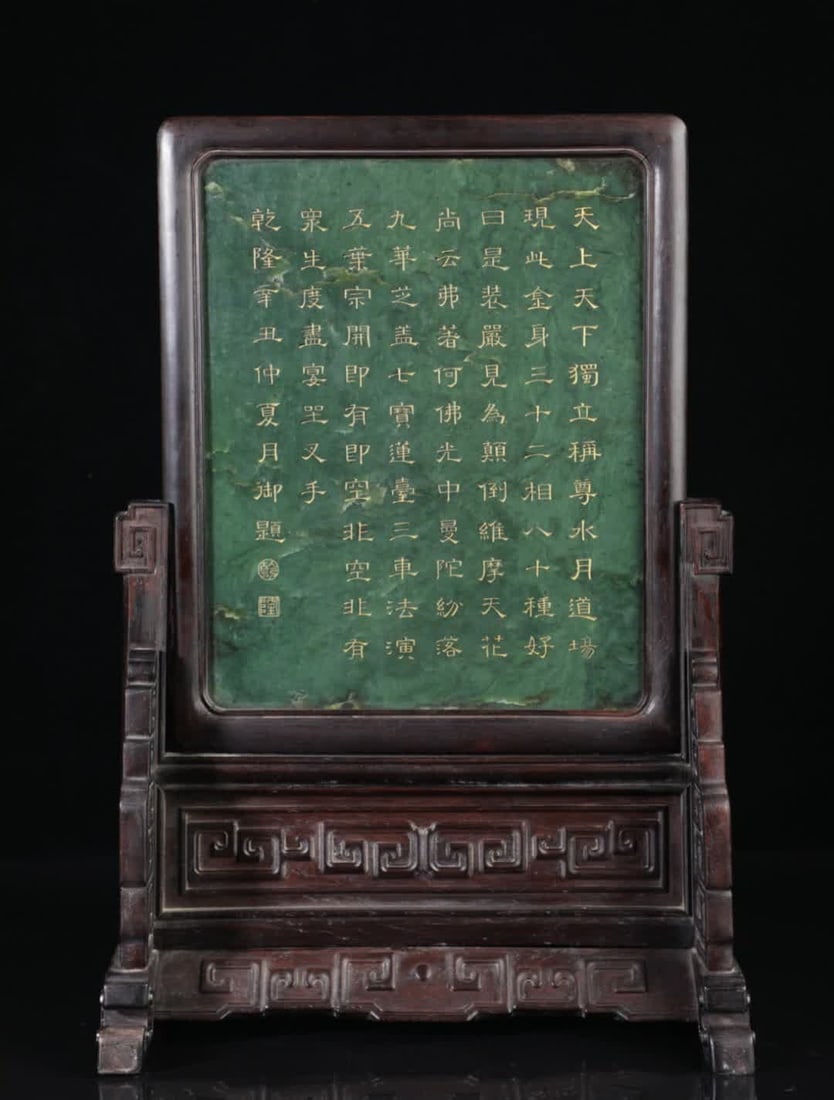 天上天下獨立稱尊水月道場
現此金身三十二相八十種好
曰是裝嚴見為顛倒維摩天花
尚云弗著何佛光中曼陀紛落
九華芝盖七寶蓮臺三車法演
五葉宗開即有即空非空非有
眾生度盡宴坐叉手
乾隆辛丑仲夏月御題